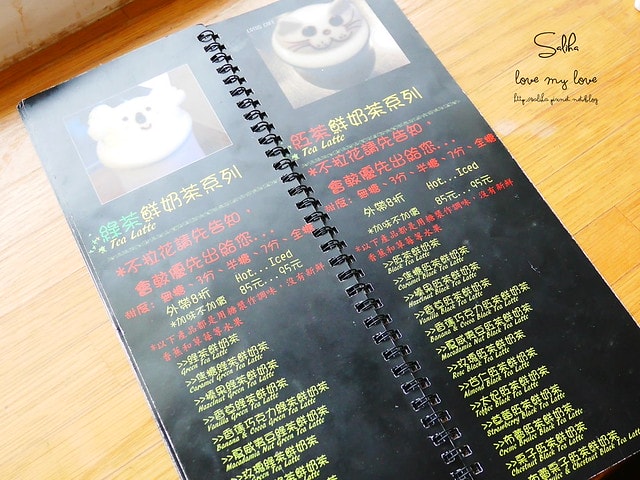 Saliha
love my love
綠茶鮮奶茶系列
Tea Latte
*不拉花請先告知,
會較優先出給您...
甜度：無糖、3分、半糖、7分、全糖
Hot...Iced
外帶8折 85元...95元
*加味不加價
*以下產品都是用糖漿作調味，沒有新鮮
香蕉和草莓等水果
>>綠茶鮮奶茶
Green Tea Latte
>>焦糖綠茶鮮奶茶
Caramel Green Tea Latte
>>榛果綠茶鮮奶茶
Hazelnut Green Tea Latte
>>香草綠茶鮮奶茶
Vanilla Green Tea Latte
>>香蕉巧克力綠茶鮮奶茶
Banana & Cocoa Green Tea Latte
>>夏威夷豆綠茶鮮奶茶
Macadamia Nut Green Tea Latte
>>玫瑰綠茶鮮奶茶
紅茶鮮奶茶系列
Tea Latte
*不拉花請先告知,
會較優先出給您...
甜度：無糖、3分、半糖、7分、全糖
Hot...Iced
外帶8折 85元...95元
*加味不加價
*以下產品都是用糖漿作調味，沒有新鮮
香蕉和草莓等水果
>>紅茶鮮奶茶
Black Tea Latte
>>焦糖紅茶鮮奶茶
Caramel Black Tea Latte
>>榛果紅茶鮮奶茶
Hazelnut Black Tea Latte
>>香草紅茶鮮奶茶
Vanilla Black Tea Latte
>>香蕉巧克力紅茶鮮奶茶
Banana & Cocoa Black Tea Latte
>>夏威夷豆紅茶鮮奶茶
Macadamia Nut Black Tea Latte
>>玫瑰紅茶鮮奶茶
Rose Black Tea Latte
>>杏仁紅茶鮮奶茶
Almond Black Tea Latte
>>太妃紅茶鮮奶茶
Toffee Black Tea Latte
>>草莓紅茶鮮奶茶
Strawberry Black Tea Latte
>>布蕾紅茶鮮奶茶
Creme Brulee Black Tea Latte
>>栗子紅茶鮮奶茶
Chestnut Black Tea Latte
>>布蕾栗子紅茶鮮奶茶